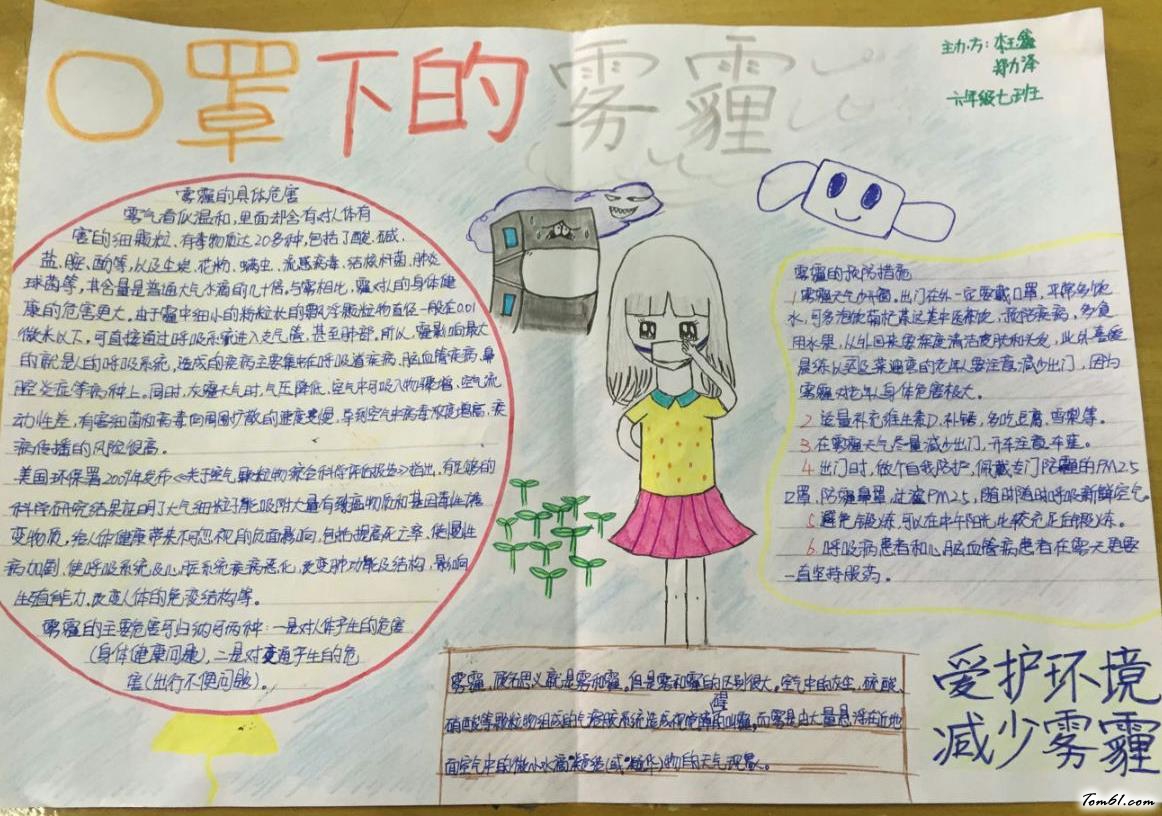 口罩下的雾霾
主办方：本王鑫
郑力泽
六年级七班
雾霾的具体危害
雾气看似温和,里面却含有对人体有
害的细颗粒、有毒物质达20多种,包括了酸、碱、
盐、胺、酚等,以及尘埃、花粉、螨虫、流感病毒、结核杆菌、肺炎
球菌等,其含量是普通大气水滴的几十倍。与雾相比,霾对人的身体健
康的危害更大。由于霾中细小的粉粒状的飘浮颗粒物直径一般在0.01
微米以下,可直接通过呼吸系统进入支气管,甚至肺部。所以,霾影响最大
的就是人的呼吸系统,造成的疾病主要集中在呼吸道疾病、脑血管疾病、鼻
腔炎症等病种上。同时,灰霾天气时,气压降低、空气中可吸入物骤增、空气流
动性差,有害细菌和病毒向周围扩散的速度变慢,导致空气中病毒浓度增高,疾
病传播的风险很高。
美国环保署2009年发布《关于空气颗粒物综合科学评估报告》指出,有足够的
科学研究结果证明了大气细粒子能吸附大量有致癌物质和基因毒性诱
变物质,给人体健康带来不可忽视的负面影响,包括提高死亡率、使慢性
病加剧、使呼吸系统及心脏系统疾病恶化,改变肺功能及结构、影响
生殖能力、改变人体的免疫结构等。
雾霾的主要危害可归纳可两种：一是对人体产生的危害
(身体健康问题),二是对交通产生的危
害(出行不便问题)。
雾霾的预防措施
1.雾霾天气少开窗。出门在外一定要戴口罩,平常多饮
水,可多泡饮菊花茶这类中医茶饮,预防疾病,多食
用水果,从外回来要深度清洁皮肤和头发,此外喜爱
晨练以及买菜遛弯的老年人要注意减少出门,因为
雾霾对老年人身体危害极大。
2.适量补充维生素D、补锌,多吃豆腐、雪梨等。
3.在雾霾天气尽量减少出门,开车注意车距。
4.出门时,做个自我防护,佩戴专门防霾的PM2.5
口罩、防霾鼻罩,过滤PM2.5,随时随时呼吸新鲜空气。
5.避免晨炼,可以在中午阳光比较充足时锻炼。
6.呼吸病患者和心脑血管病患者在雾天更要
一直坚持服药。
雾霾,顾名思义就是雾和霾。但是雾和霾的区别很大。空气中的灰尘、硫酸、
硝酸等颗粒物组成的气溶胶系统造成视觉障碍的叫霾,而雾是由大量悬浮在近地
面空气中的微小水滴凝结(或凝华)物的天气现象。
爱护环境
减少雾霾
Tom61.com